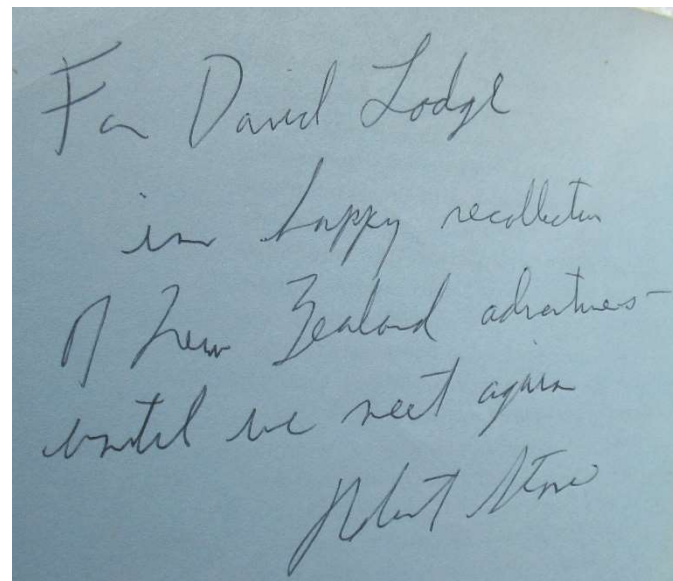 For David Lodge
in happy recollection
of New Zealand adventures –
until we meet again
Robert Stone